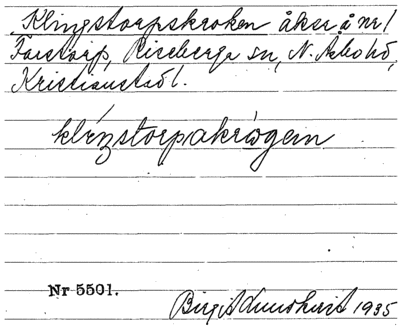 Klingstorpskroken åker å nr 1
Farstorp, Riseberga sn, N. Åsbo hd,
Kristianstads l.
Nr 5501.
Birgit Lundkvist 1935